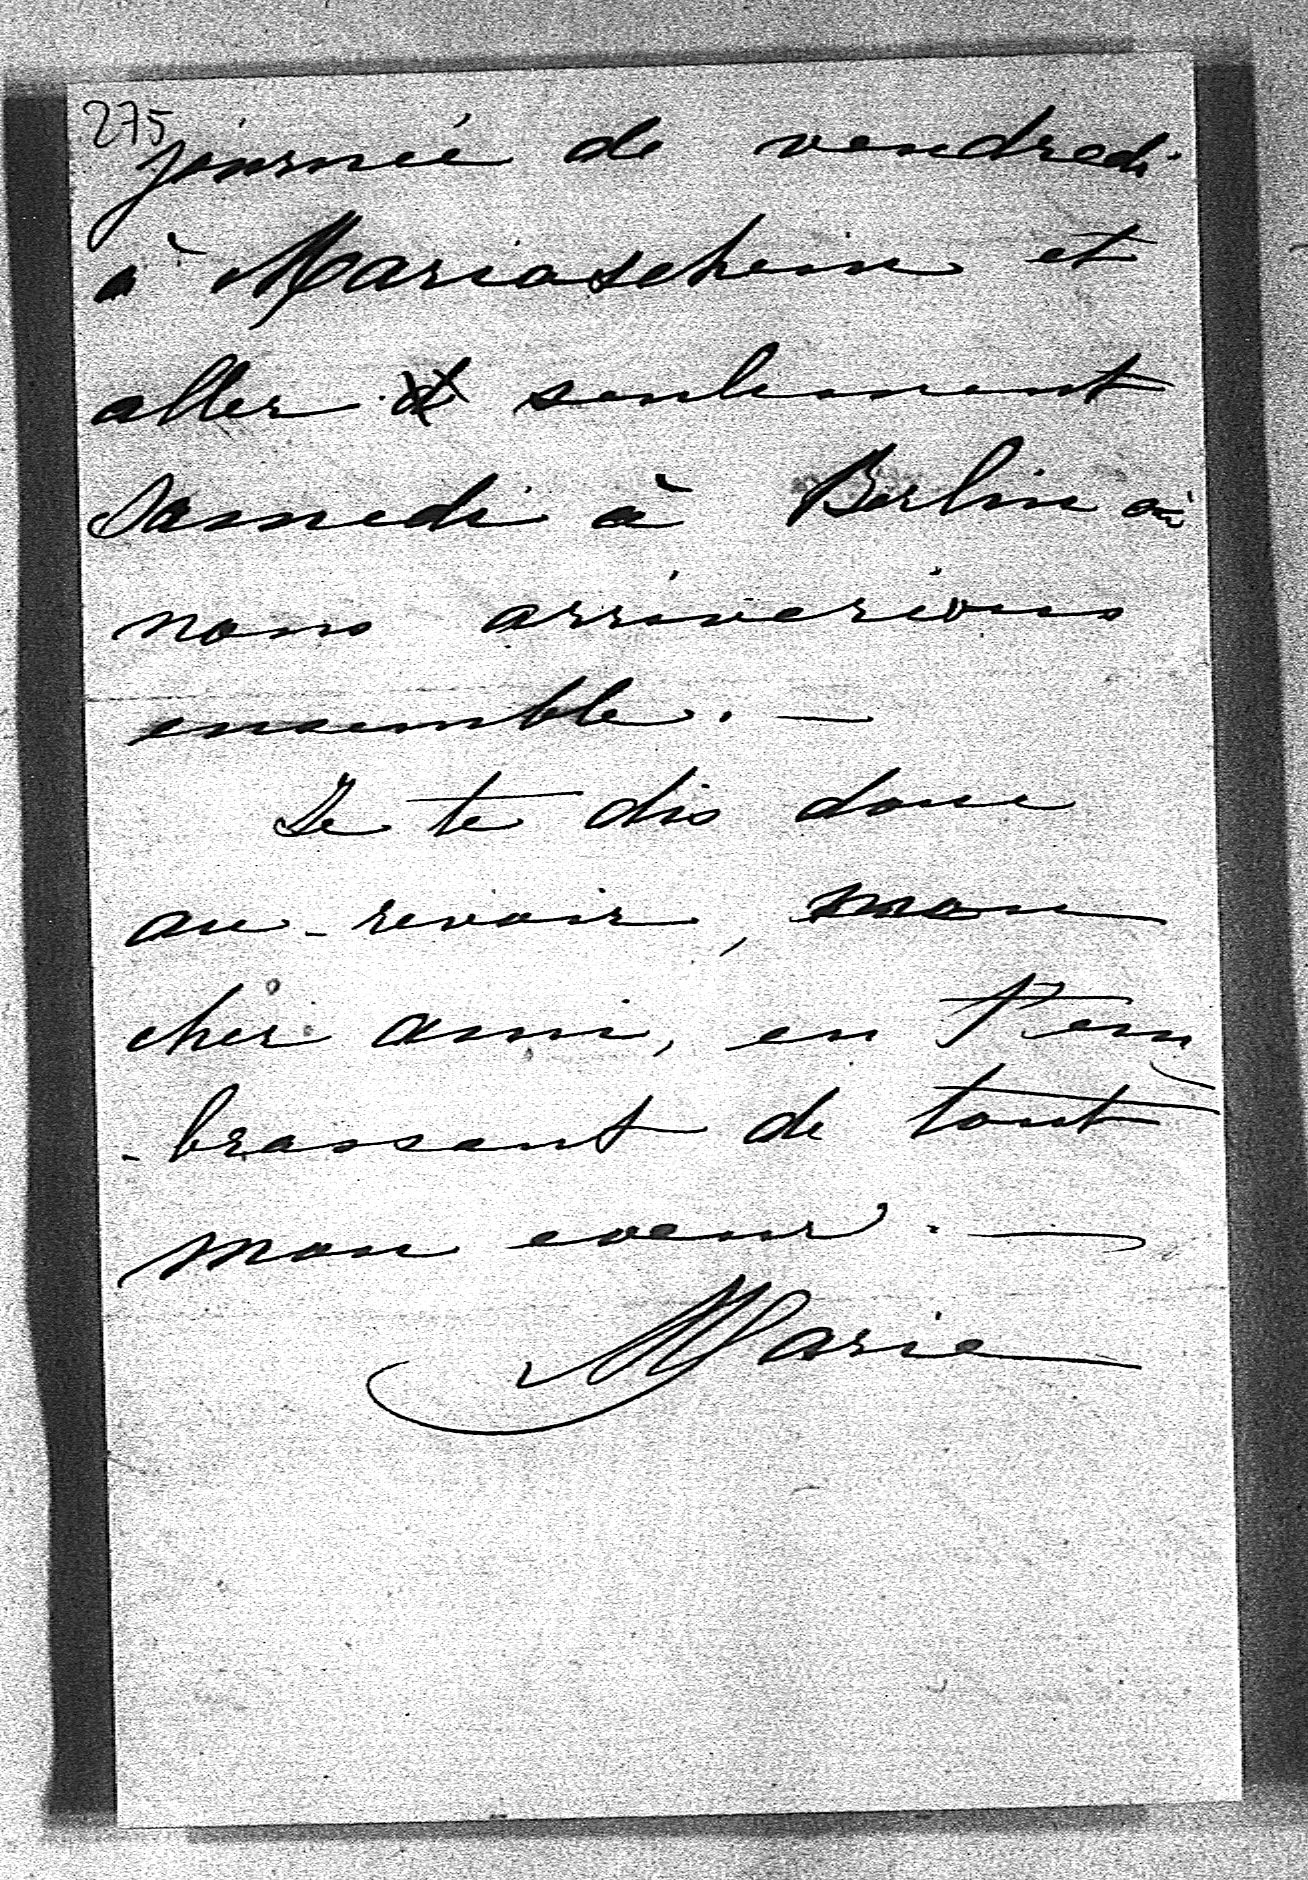 275
journée de vendredi
à Mariaschein et
aller seulement
Samedi à Berlin où
nous arriverions
ensemble. —
Je te dis donc
au-revoir, mon
cher ami, en t'em
-brassant de tout
mon coeur. —
Marie